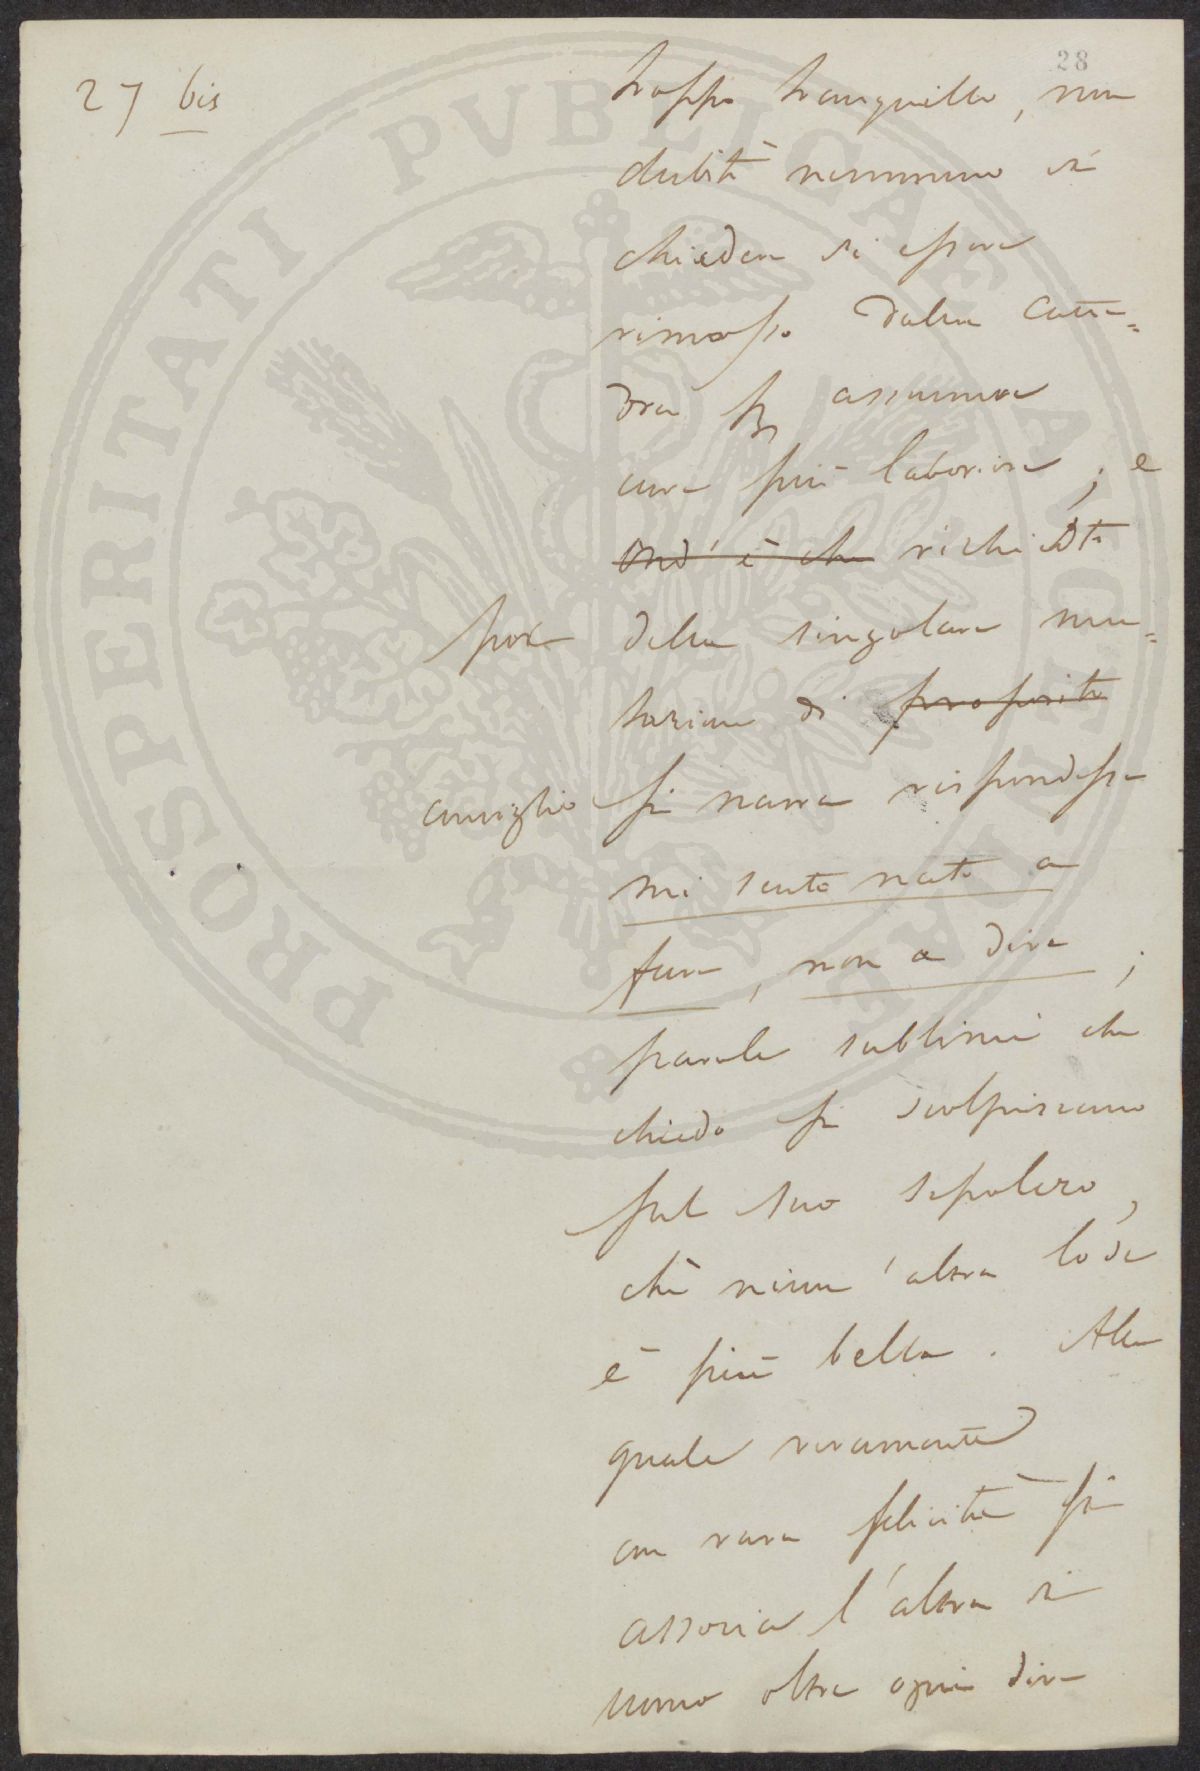 28
27 bis
troppo tranquillo, non
dubitò nemmeno di
chiedere di essere
rimosso dalla catte=
dra per assumere
cure più laboriose; e
ond'è che richiesto
poi della singolare mu=
tazione di proposito
consiglio si narra rispondesse
mi sento nato a
fare, non a dire;
parole sublimi che
chiedo si scolpiscano
sul suo sepolcro,
chè niun'altra lode
è più bella. Alla
quale veramente
con rara felicità si
associa l'altra di
uomo oltre ogni dire
PROSPERITATI PUBLICAE AUGENDAE